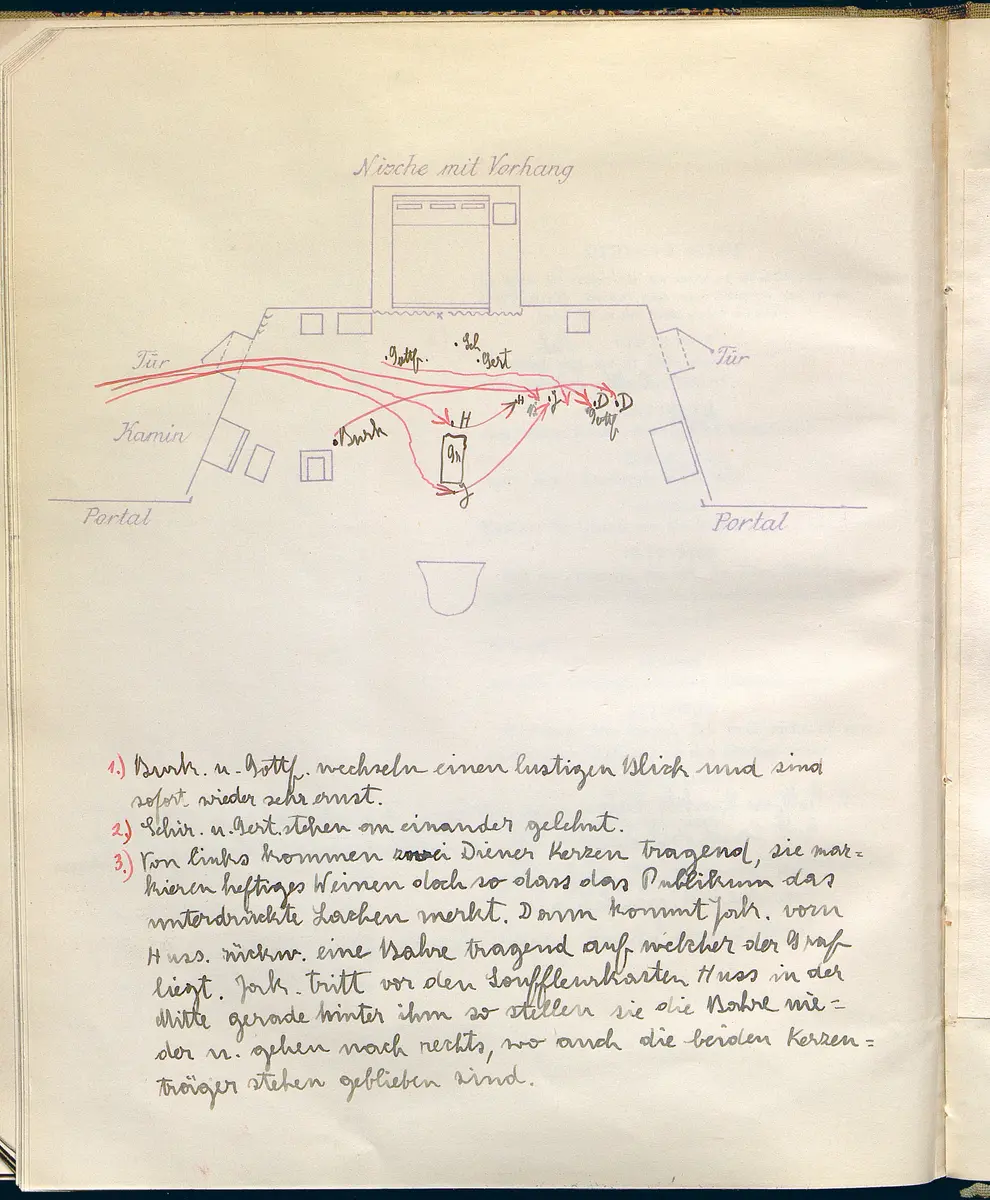 Nische mit Vorhang
Tür
Tür
Gottf.
Sch
Gert
H
H
J
D
D
Gottf
Kamin
Burk
Gr
J
Portal
Portal
1.) Burk. u. Gottf. wechseln einen lustigen Blick und sind
sofort wieder sehr ernst.
2.) Schir. u. Gert. stehen an einander gelehnt.
3.) Von links kommen zwei Diener Kerzen tragend, sie mar=
kieren heftiges Weinen doch so dass das Publikum das
unterdrückte Lachen merkt. Dann kommt Jak. vorn
Huss. rückw. eine Bahre tragend auf welcher der Graf
liegt. Jak. tritt vor den Souffleurkasten Huss in der
Mitte gerade hinter ihm so stellen sie die Bahre nie=
der u. gehen nach rechts, wo auch die beiden Kerzen=
träger stehen geblieben sind.